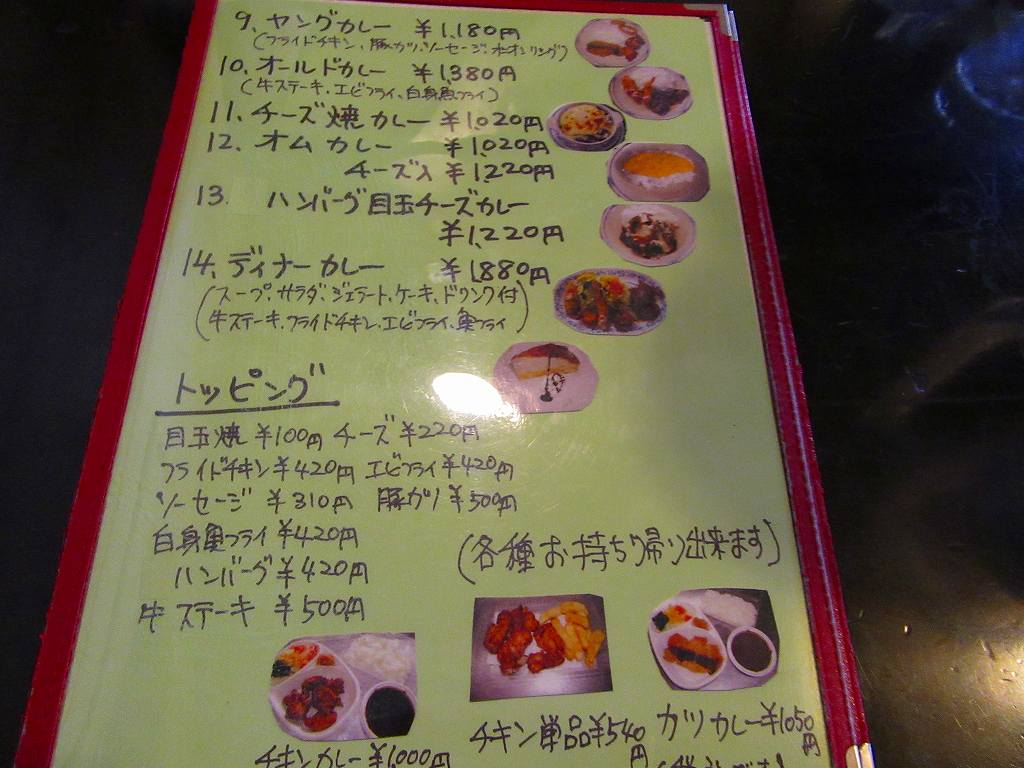 9. ヤングカレー ¥1,180円
(フライドチキン、豚カツ、ソーセージ、オニオンリング)
10. オールドカレー ¥1,380円
(牛ステーキ、エビフライ、白身魚フライ)
11. チーズ焼カレー ¥1,020円
12. オムカレー ¥1,020円
チーズ入 ¥1,220円
13. ハンバーグ目玉チーズカレー
¥1,220円
14. ディナーカレー ¥1,880円
(スープ、サラダ、ジェラート、ケーキ、ドリンク付
牛ステーキ、フライドチキン、エビフライ、魚フライ)
トッピング
目玉焼 ¥100円 チーズ ¥220円
フライドチキン ¥420円 エビフライ ¥420円
ソーセージ ¥310円 豚カツ ¥500円
白身魚フライ ¥420円
ハンバーグ ¥420円
牛ステーキ ¥500円
(各種お持ち帰り出来ます)
チキンカレー ¥1,000円
チキン単品 ¥540円
カツカレー ¥1050円